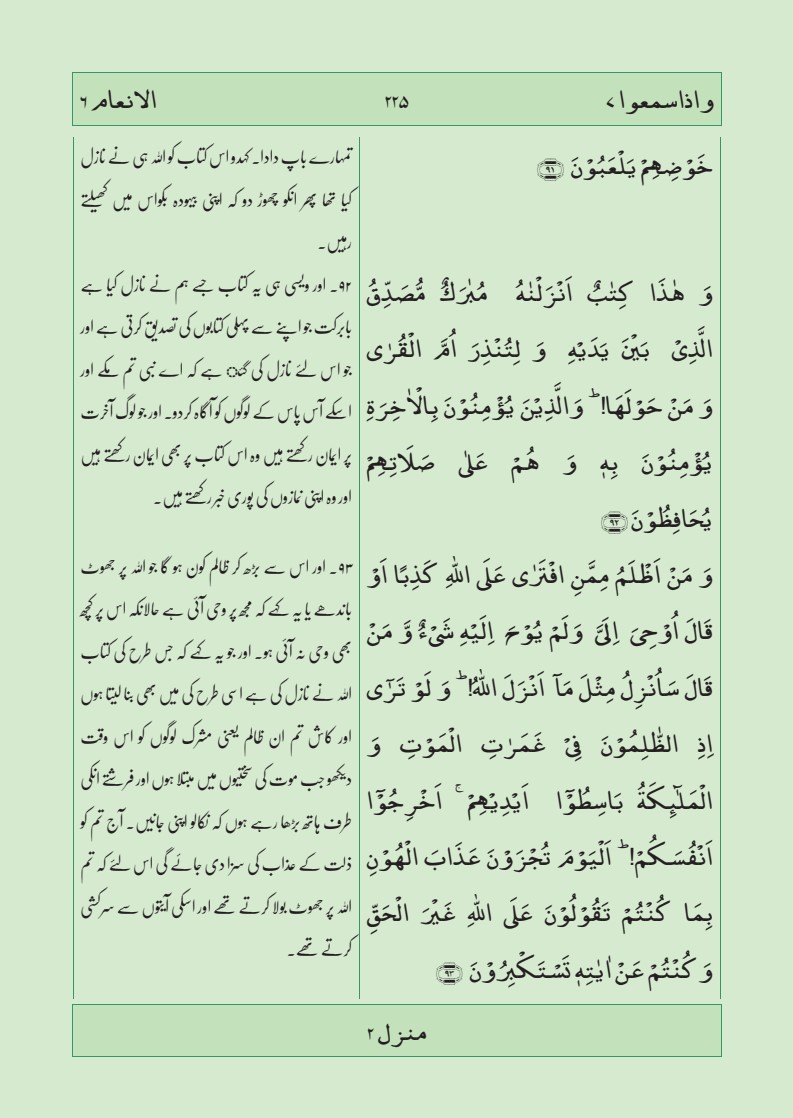 واذاسمعوا ۷
۲۲۵
الانعام ۶
خَوۡضِهِمۡ يَلۡعَبُوۡنَ ﴿۹۱﴾
وَ هٰذَا كِتٰبٌ اَنۡزَلۡنٰهُ مُبٰرَكٌ مُّصَدِّقُ
الَّذِىۡ بَيۡنَ يَدَيۡهِ وَ لِتُنۡذِرَ اُمَّ الۡقُرٰى
وَ مَنۡ حَوۡلَهَا‌!ؕ وَالَّذِيۡنَ يُؤۡمِنُوۡنَ بِالۡاٰخِرَةِ
يُؤۡمِنُوۡنَ بِهٖ وَ هُمۡ عَلٰى صَلَاتِهِمۡ
يُحَافِظُوۡنَ ﴿۹۲﴾
وَ مَنۡ اَظۡلَمُ مِمَّنِ افۡتَرٰى عَلَى اللّٰهِ كَذِبًا اَوۡ
قَالَ اُوۡحِىَ اِلَىَّ وَلَمۡ يُوۡحَ اِلَيۡهِ شَىۡءٌ وَّ مَنۡ
قَالَ سَاُنۡزِلُ مِثۡلَ مَاۤ اَنۡزَلَ اللّٰهُ‌!ؕ وَ لَوۡ تَرٰٓى
اِذِ الظّٰلِمُوۡنَ فِىۡ غَمَرٰتِ الۡمَوۡتِ وَ
الۡمَلٰٓٮِٕكَةُ بَاسِطُوۡۤا اَيۡدِيۡهِمۡ‌ۚ اَخۡرِجُوۡۤا
اَنۡفُسَكُمُ‌!ؕ اَلۡيَوۡمَ تُجۡزَوۡنَ عَذَابَ الۡهُوۡنِ
بِمَا كُنۡتُمۡ تَقُوۡلُوۡنَ عَلَى اللّٰهِ غَيۡرَ الۡحَقِّ
وَ كُنۡتُمۡ عَنۡ اٰيٰتِهٖ تَسۡتَكۡبِرُوۡنَ ﴿۹۳﴾
تمہارے باپ دادا۔ کہدو اس کتاب کو اللہ ہی نے نازل
کیا تھا پھر انکو چھوڑ دو کہ اپنی بیہودہ بکواس میں کھیلتے
رہیں۔
۹۲۔ اور ویسی ہی یہ کتاب جسے ہم نے نازل کیا ہے
بابرکت جو اپنے سے پہلی کتابوں کی تصدیق کرتی ہے اور
جو اس لئے نازل کی گئ ہے کہ اے نبی تم مکے اور
اسکے آس پاس کے لوگوں کو آگاہ کر دو۔ اور جو لوگ آخرت
پر ایمان رکھتے ہیں وہ اس کتاب پر بھی ایمان رکھتے ہیں
اور وہ اپنی نمازوں کی پوری خبر رکھتے ہیں۔
۹۳۔ اور اس سے بڑھ کر ظالم کون ہو گا جو اللہ پر جھوٹ
باندھے یا یہ کہے کہ مجھ پر وحی آئی ہے حالانکہ اس پر کچھ
بھی وحی نہ آئی ہو۔ اور جو یہ کہے کہ جس طرح کی کتاب
اللہ نے نازل کی ہے اسی طرح کی میں بھی بنا لیتا ہوں
اور کاش تم ان ظالم یعنی مشرک لوگوں کو اس وقت
دیکھو جب موت کی سختیوں میں مبتلا ہوں اور فرشتے انکی
طرف ہاتھ بڑھا رہے ہوں کہ نکالو اپنی جانیں۔ آج تم کو
ذلت کے عذاب کی سزا دی جائے گی اس لئے کہ تم
اللہ پر جھوٹ بولا کرتے تھے اور اسکی آیتوں سے سرکشی
کرتے تھے۔
منزل ۲